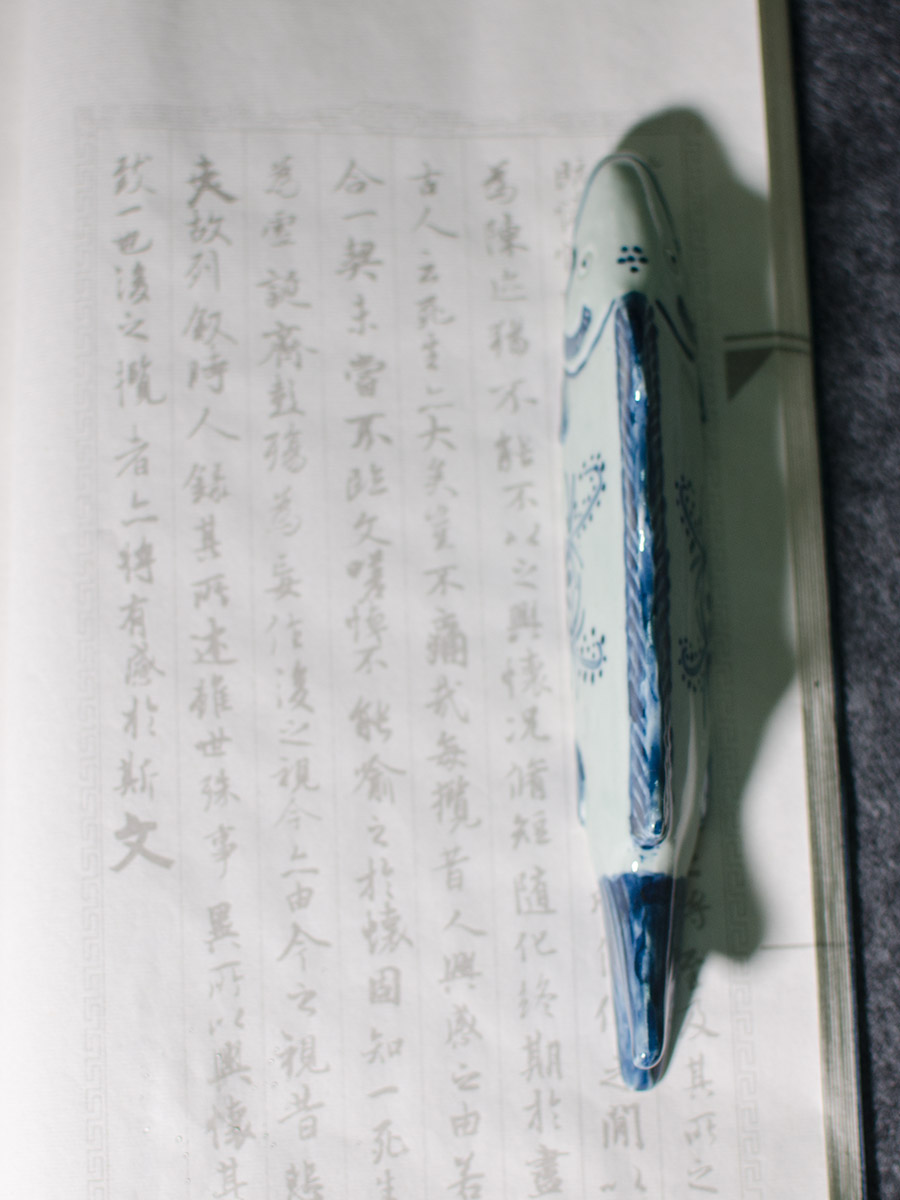 及其所之
之閒以
為陳迹猶不能不以之興懷況脩短隨化終期於盡
古人云死生亦大矣豈不痛哉每攬昔人興感之由若
合一契未嘗不臨文嗟悼不能喻之於懷固知一死生
為虛誕齊彭殤為妄作後之視今亦由今之視昔悲
夫故列叙時人錄其所述雖世殊事異所以興懷其
致一也後之攬者亦將有感於斯文